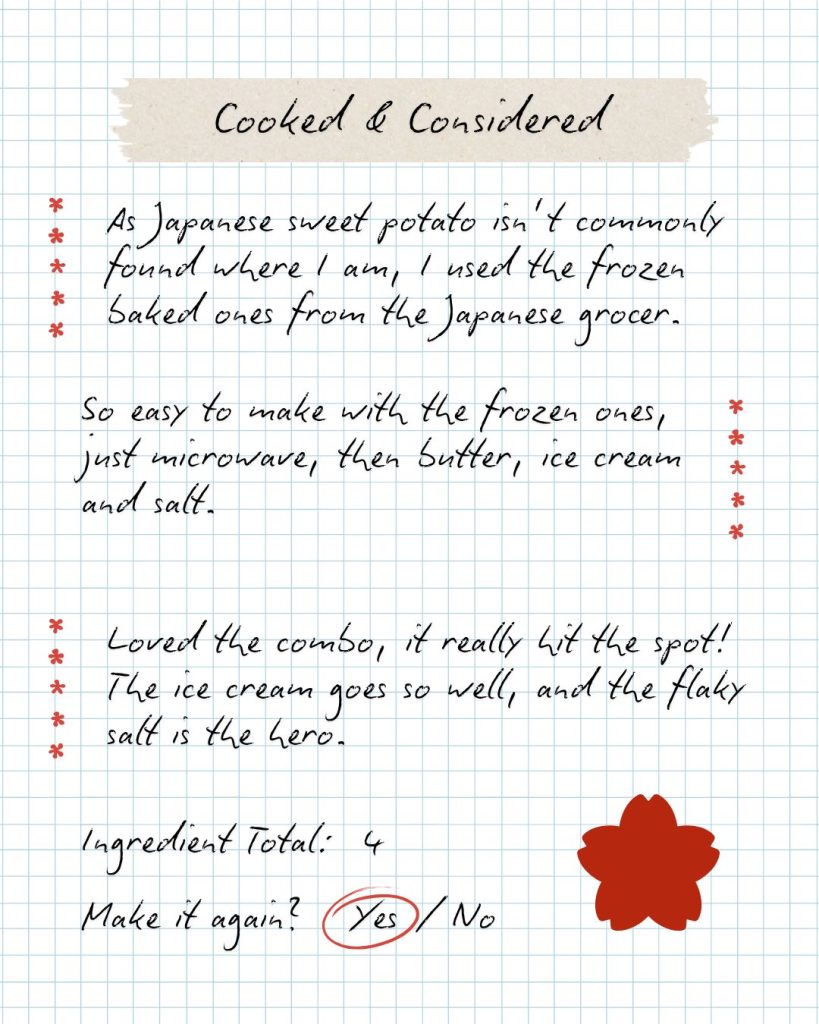 Cooked & Considered
As Japanese sweet potato isn't commonly
found where I am, I used the frozen
baked ones from the Japanese grocer.
So easy to make with the frozen ones,
just microwave, then butter, ice cream
and salt.
Loved the combo, it really hit the spot!
The ice cream goes so well, and the flaky
salt is the hero.
Ingredient Total: 4
Make it again? Yes / No